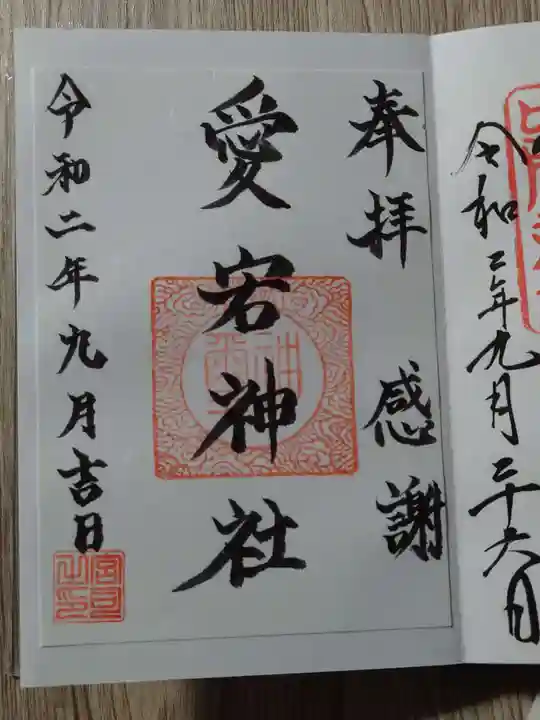 令和二年九月二十六日
奉拝 感謝
愛宕神社
令和二年九月吉日
宮司之印